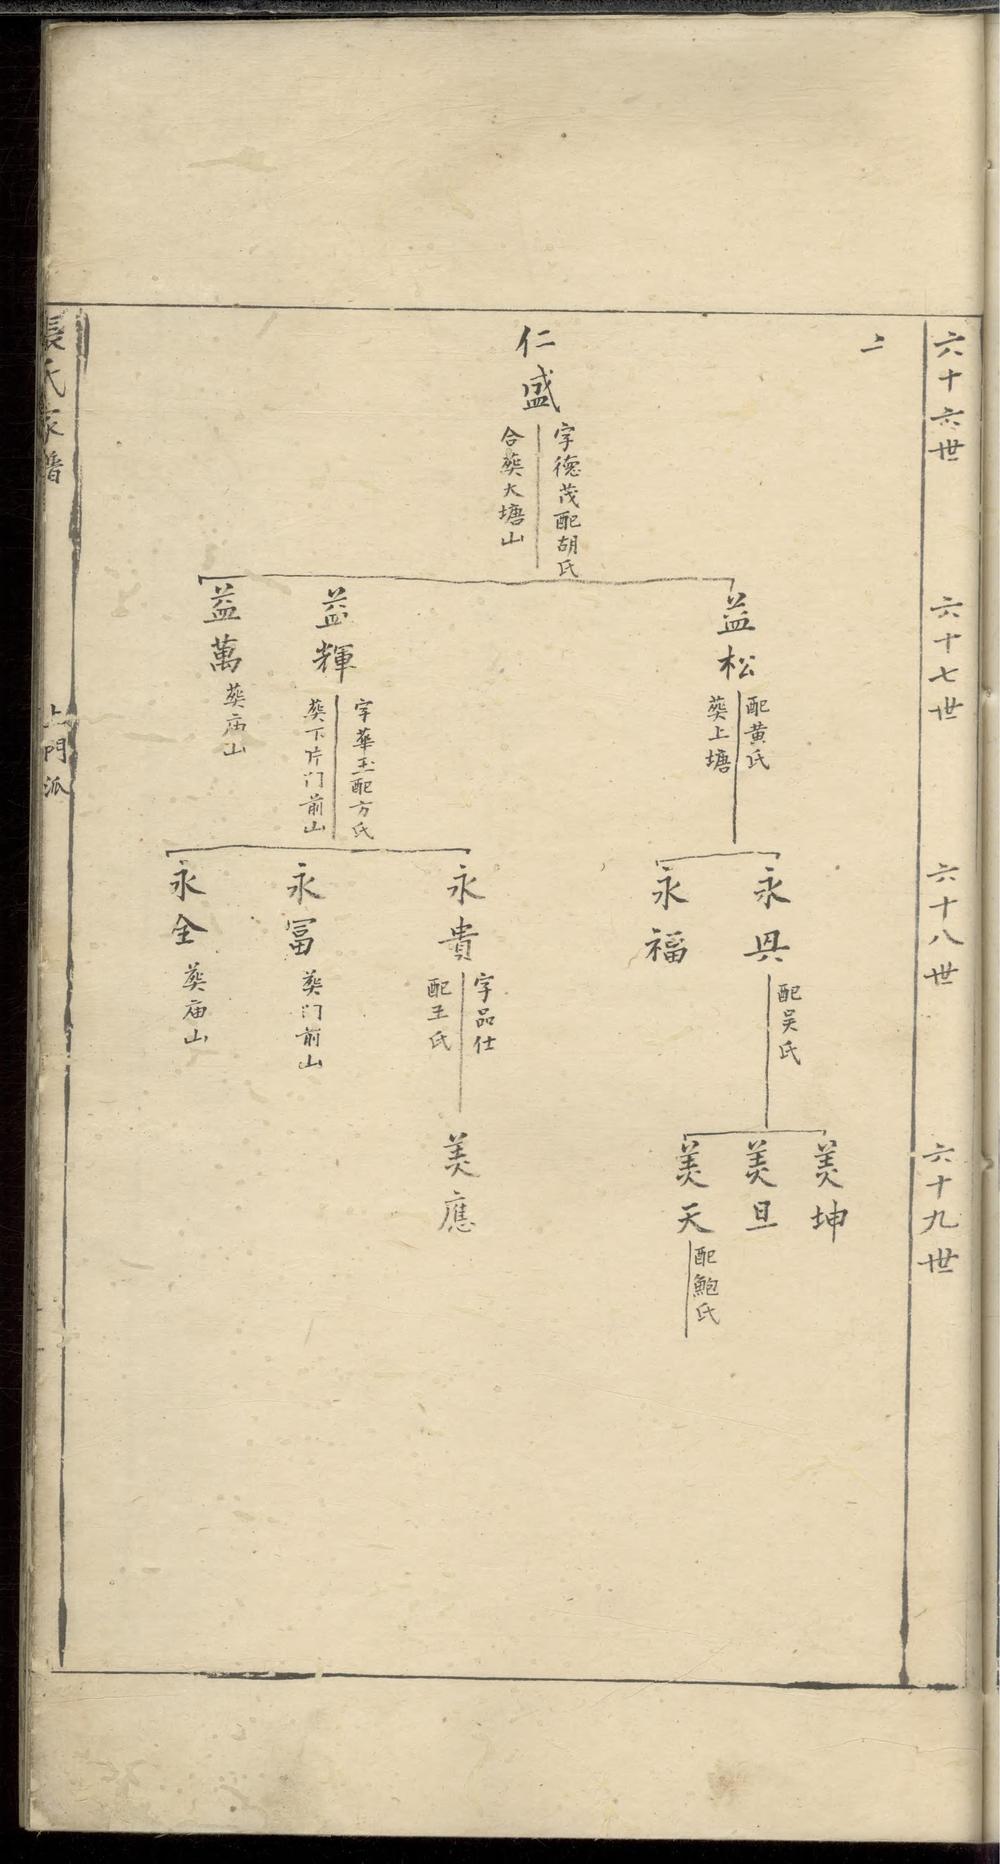 六十六世
六十七世
六十八世
六十九世
二
仁盛
字德茂配胡氏
合葬大塘山
益松
配黄氏
葬上塘
益輝
字華玉配方氏
葬下片门前山
益萬
葬庙山
永興
配吴氏
永福
永貴
字品仕
配王氏
永冨
葬门前山
永全
葬庙山
美坤
美旦
美天
配鮑氏
美應
張氏家譜
上門派